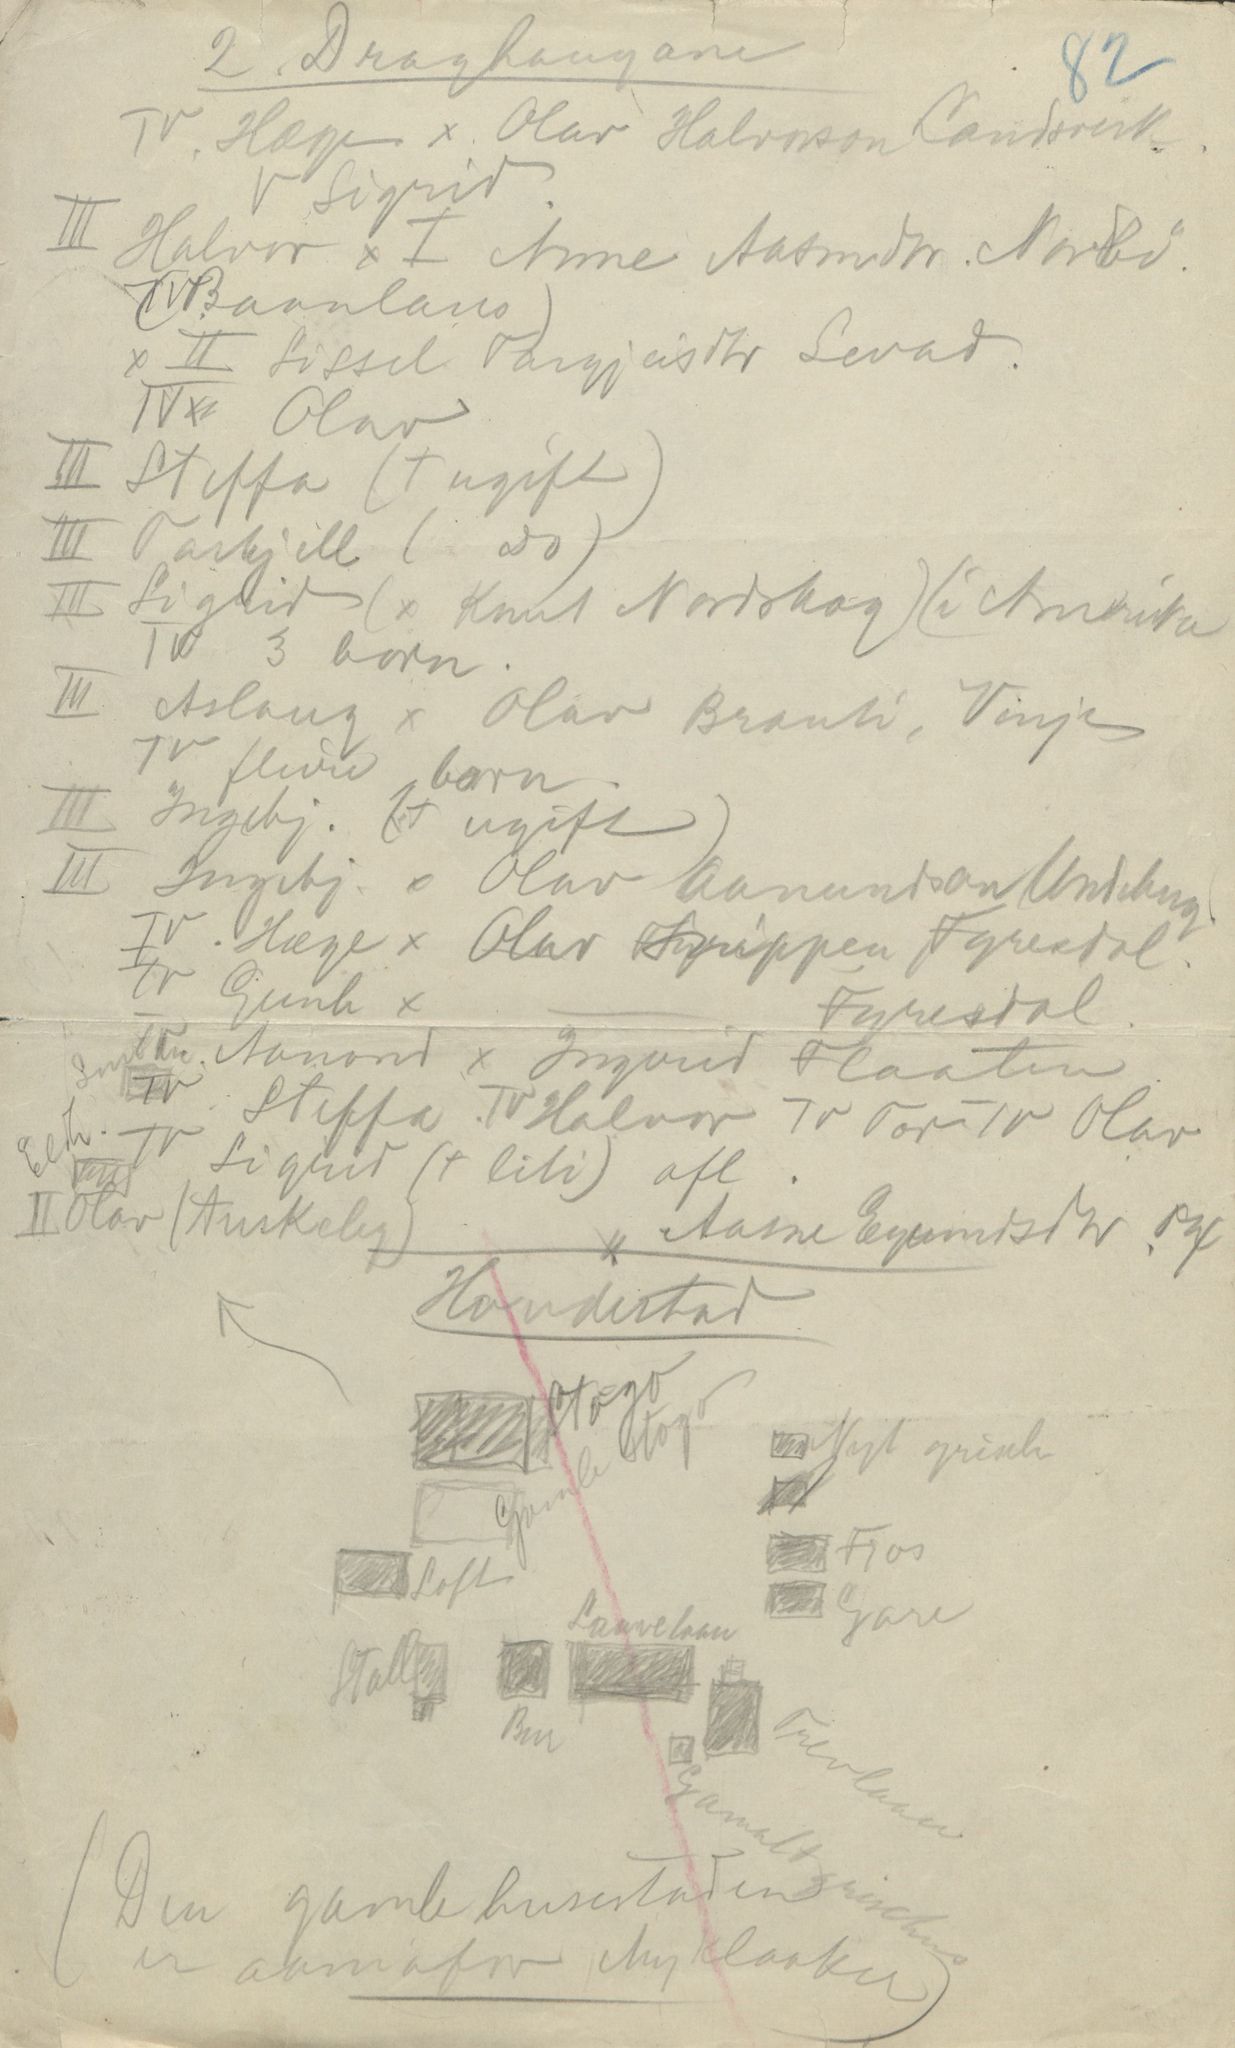 2. Draghaugane
82
IV. Hæge x Olav Halvorson Landsverk.
V Sigrid.
III Halvor x I Anne Aasmdtr. Nordbö.
(IV Baanlaus)
x II Sissel Targjeisdtr Sevad.
IV Olav
III Steffa (+ ugift)
III Tarkjell ( Do)
III Sigrid (x Knut Nordskog) (i Amerika
IV 3 born.
III Aslaug x Olav Brauti, Vinje
IV fleire born
III Ingebj. (+ ugift)
III Ingebj. x Olav Aanundson
IV. Hæge x Olav Fyresdal.
IV Gunh x — Fyresdal.
IV. Aanond x Ingerid Flaaten
IV Steffa. IV Halvor IV Tor IV Olav
IV Sigrid (+ liti) ofl.
II Olav (Auskeleg) x Aasne Eyvindsdtr.
Haudestad
Stogo
Gamle Stogo
Nyt griseh
Loft
Fjos
Gare
Lauvelaan
Stall
Bur
Frevlaan
Gamalt grisehus
(Den gamle husestaden
er aamafor Myklaaker)